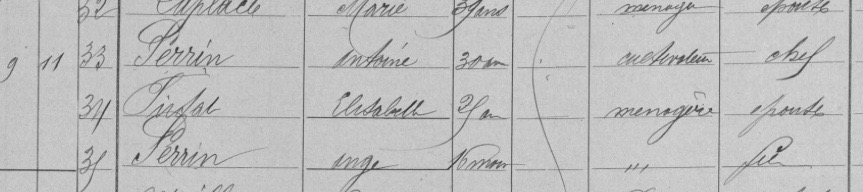 32 Marie 39 ans ménagère épouse
9 11 33 Perrin antoine 30 an cultivateur chef
34 Elisabeth 25 an menagère épouse
35 Perrin ange 16 mois "